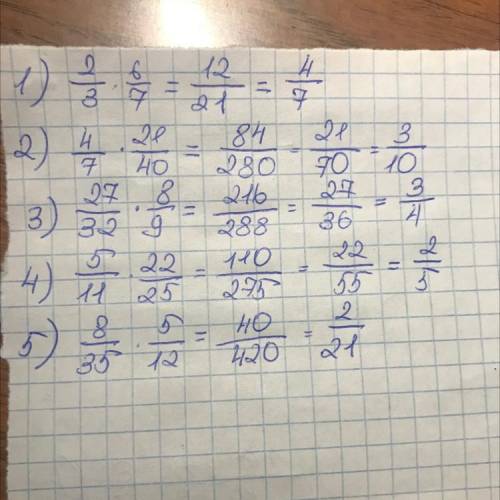 1) 2/3 · 6/7 = 12/21 = 4/7
2) 4/7 · 21/40 = 84/280 = 21/70 = 3/10
3) 27/32 · 8/9 = 216/288 = 27/36 = 3/4
4) 5/11 · 22/25 = 110/275 = 22/55 = 2/5
5) 8/35 · 5/12 = 40/420 = 2/21